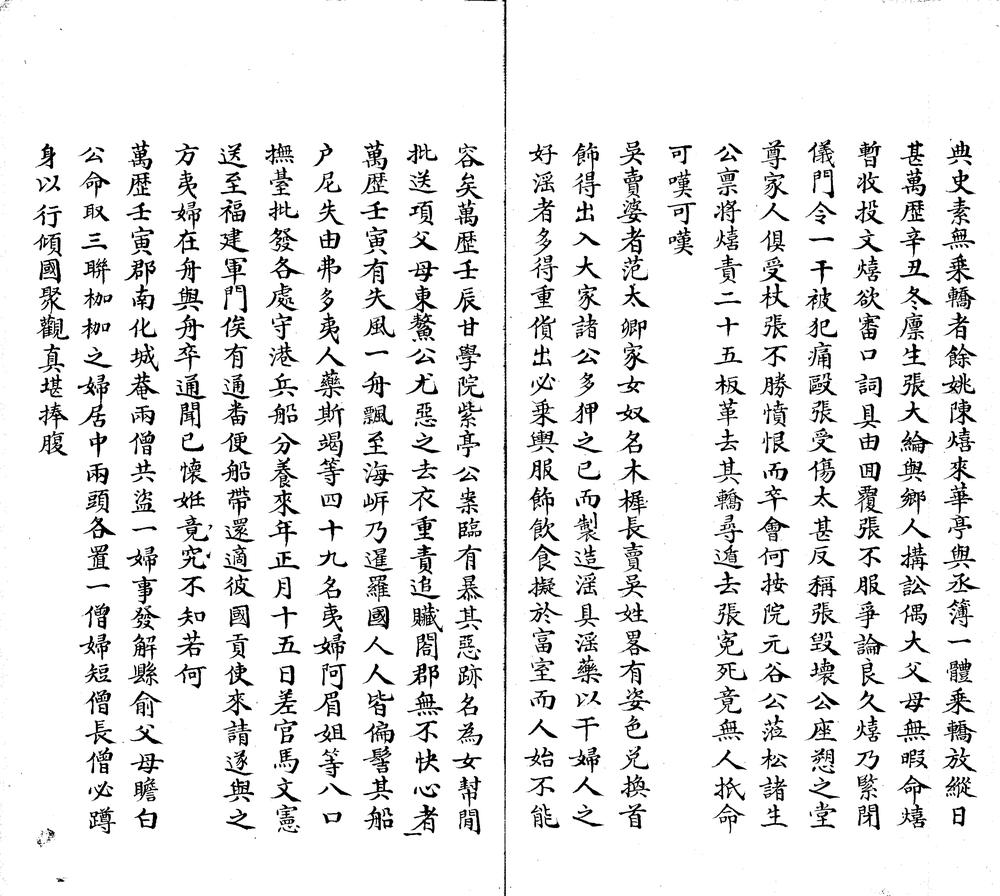 典史素無乗轎者餘姚陳熺來華亭與丞簿一體乗轎放縱日
甚萬歷辛丑冬廪生張大綸與鄉人搆訟偶大父母無暇命熺
暫收投文熺欲審口詞具由回覆張不服爭論良久熺乃緊閉
儀門令一干被犯痛毆張受傷太甚反稱張毁壞公座愬之堂
尊家人俱受杖張不勝憤恨而卒會何按院元谷公蒞松諸生
公禀將熺責二十五板革去其轎尋遁去張寃死竟無人抵命
可嘆可嘆
吳賣婆者范太卿家女奴名木樨長賣吳姓畧有姿色兑換首
飾得出入大家諸公多狎之已而製造淫具淫藥以干婦人之
好淫者多得重貨出必乗輿服飾飲食擬於富室而人始不能
容矣萬歷壬辰甘學院紫亭公案臨有暴其惡跡名為女幫閒
批送項父母東鰲公尤惡之去衣重責追贓閤郡無不快心者
萬歷壬寅有失風一舟飄至海㟁乃暹羅國人人皆偏髻其船
户尼失由弗多夷人藥斯竭等四十九名夷婦阿眉姐等八口
撫臺批發各處守港兵船分養來年正月十五日差官馬文憲
送至福建軍門俟有通畨便船帶還適彼國貢使來請遂與之
方夷婦在舟與舟卒通聞已懷姙竟究不知若何
萬歷壬寅郡南化城菴兩僧共盗一婦事發解縣俞父母瞻白
公命取三聯枷枷之婦居中兩頭各置一僧婦短僧長僧必蹲
身以行傾國聚觀真堪捧腹